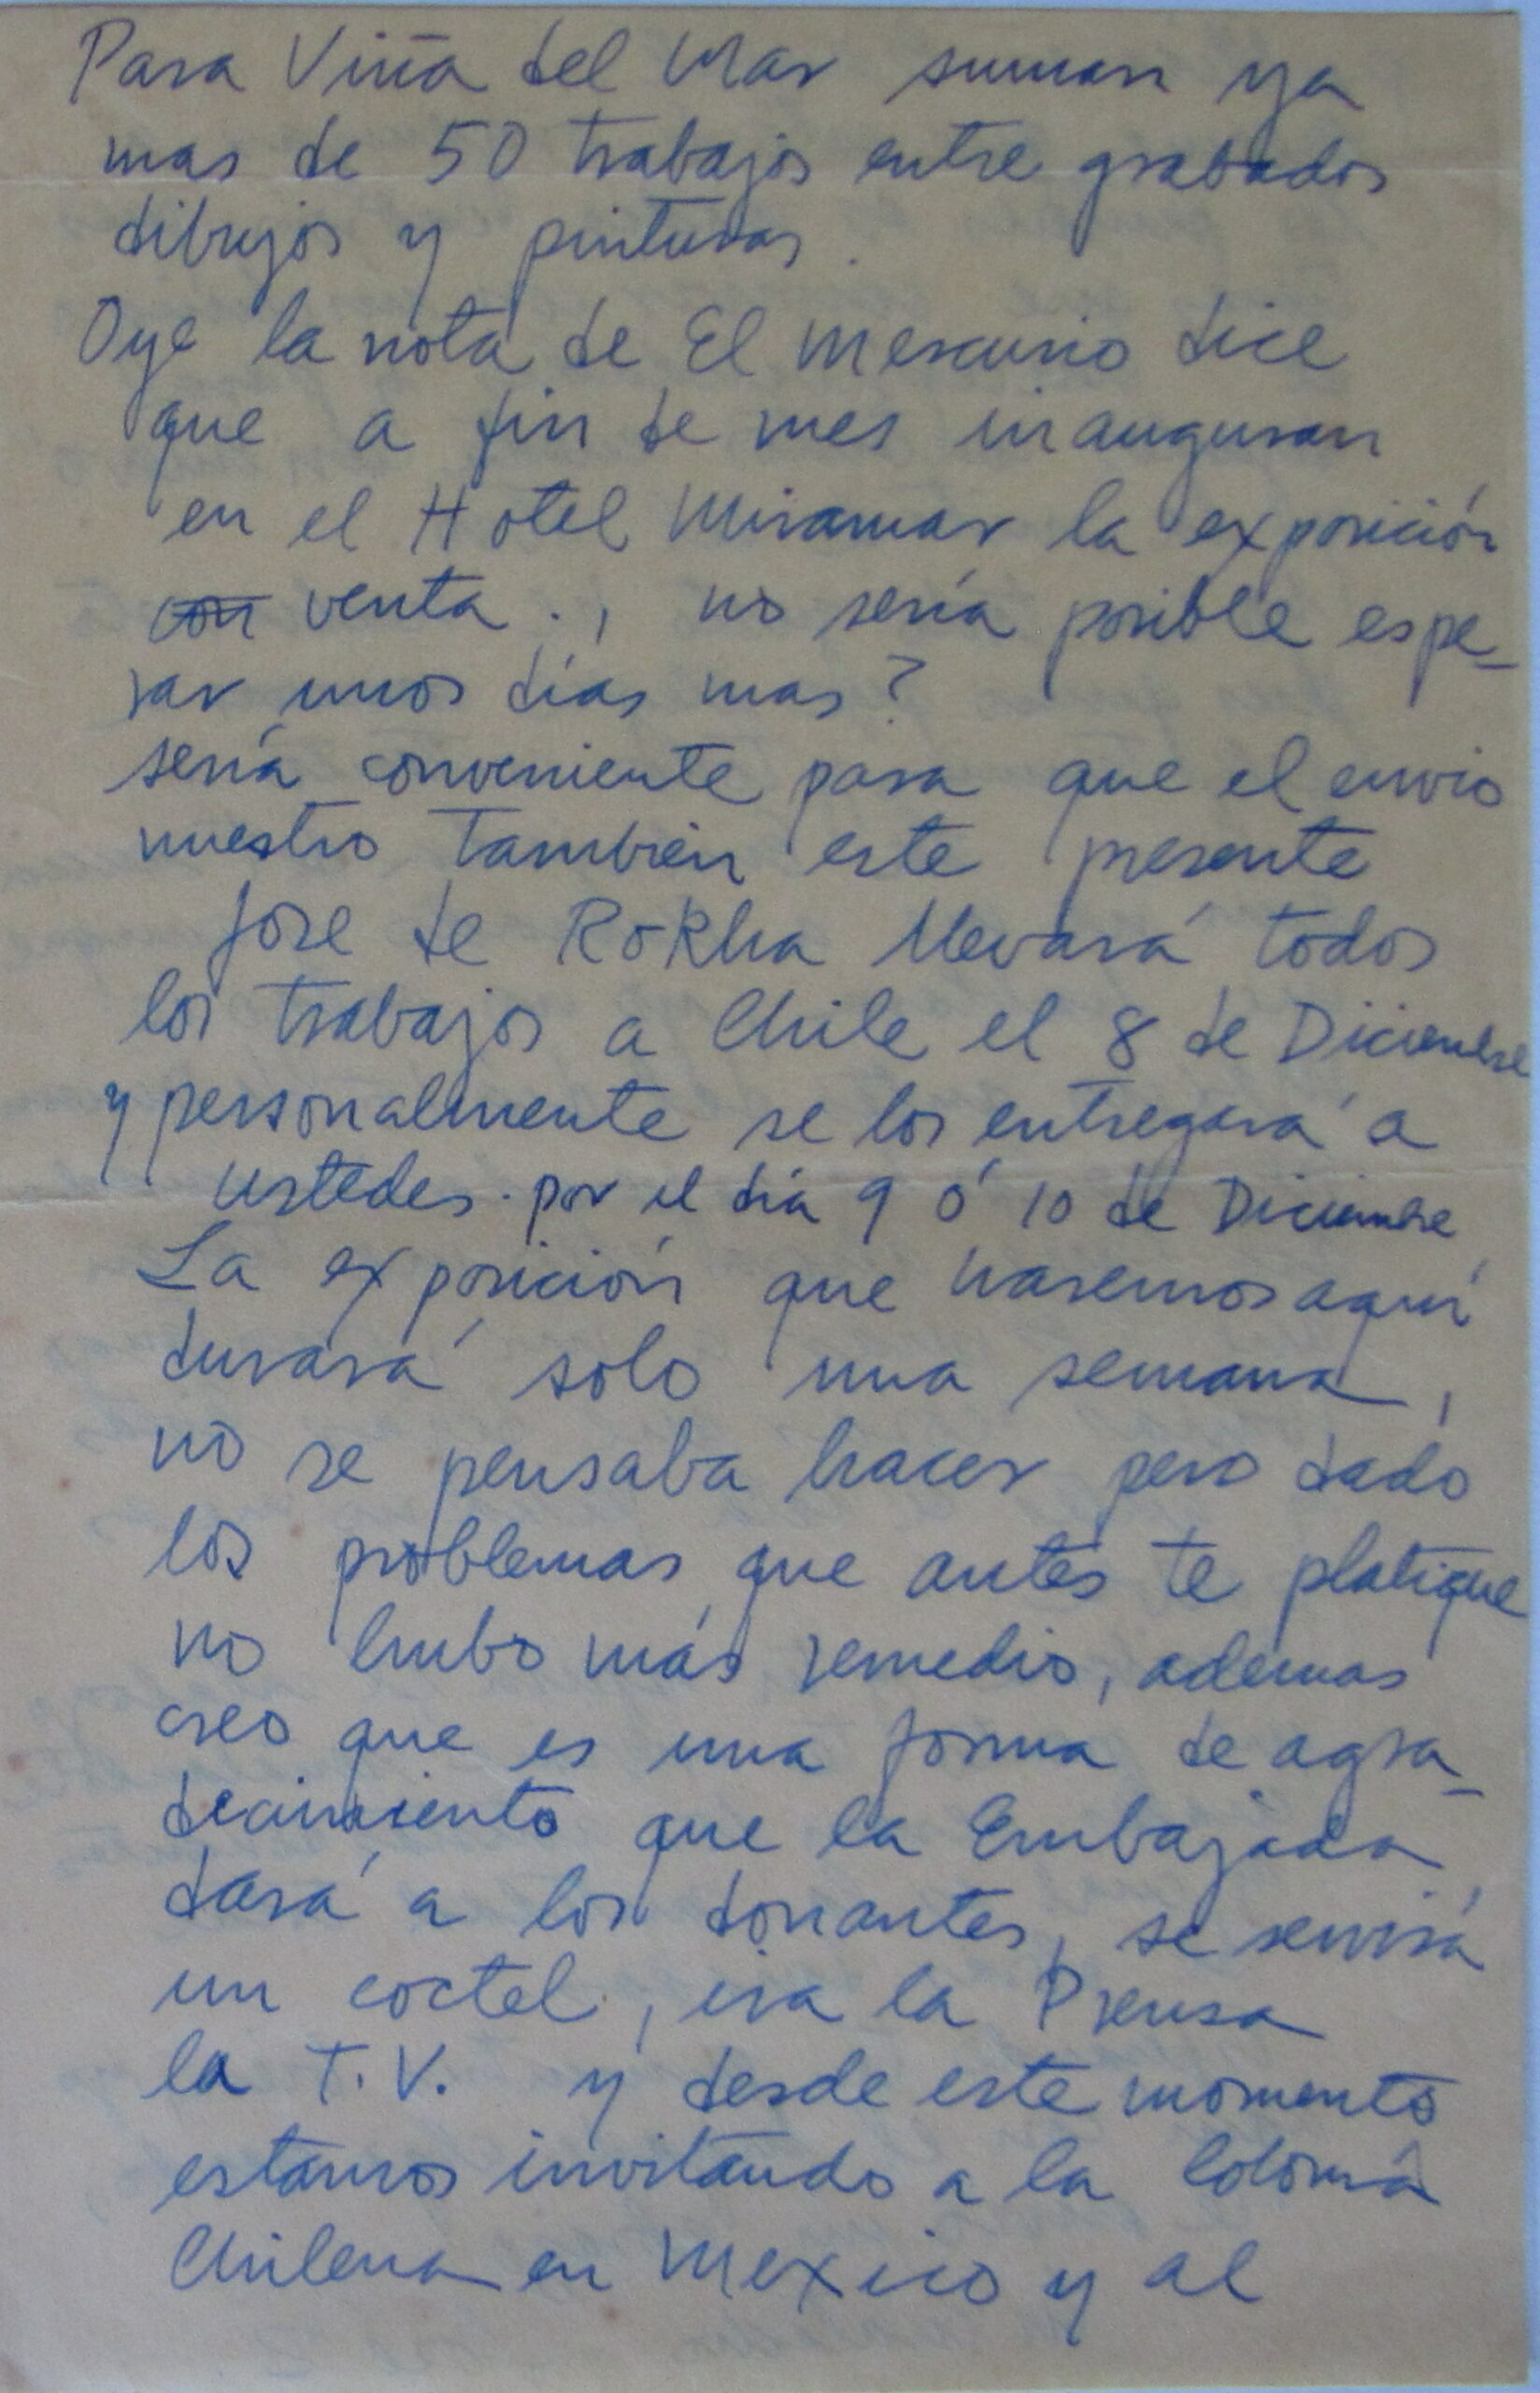 Para Viña del Mar suman ya
mas de 50 trabajos entre grabados
dibujos y pinturas.
Oye la nota de El Mercurio dice
que a fin de mes inauguran
en el Hotel Miramar la exposición
con venta., no sería posible espe-
rar unos días mas?
sería conveniente para que el envio
nuestro también este presente
Jose de Rokha llevará todos
los trabajos a Chile el 8 de Diciembre
y personalmente se los entregará a
ustedes. por el día 9 ó 10 de Diciembre
La exposición que haremos aquí
durará solo una semana,
no se pensaba hacer pero dado
los problemas que antes te platique
no hubo más remedio, ademas
creo que es una forma de agra-
decimiento que la Embajada
dará a los donantes, se servirá
un coctel, ira la Prensa
la T.V. y desde este momento
estamos invitando a la Colonia
Chilena en Mexico y al